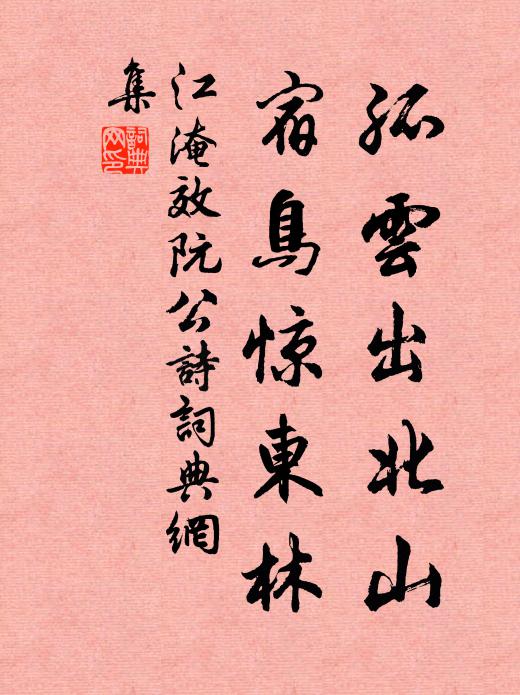 孤雲出北山
宿鳥惊東林
江淹效阮公詩詞典網
集
詞典
网印